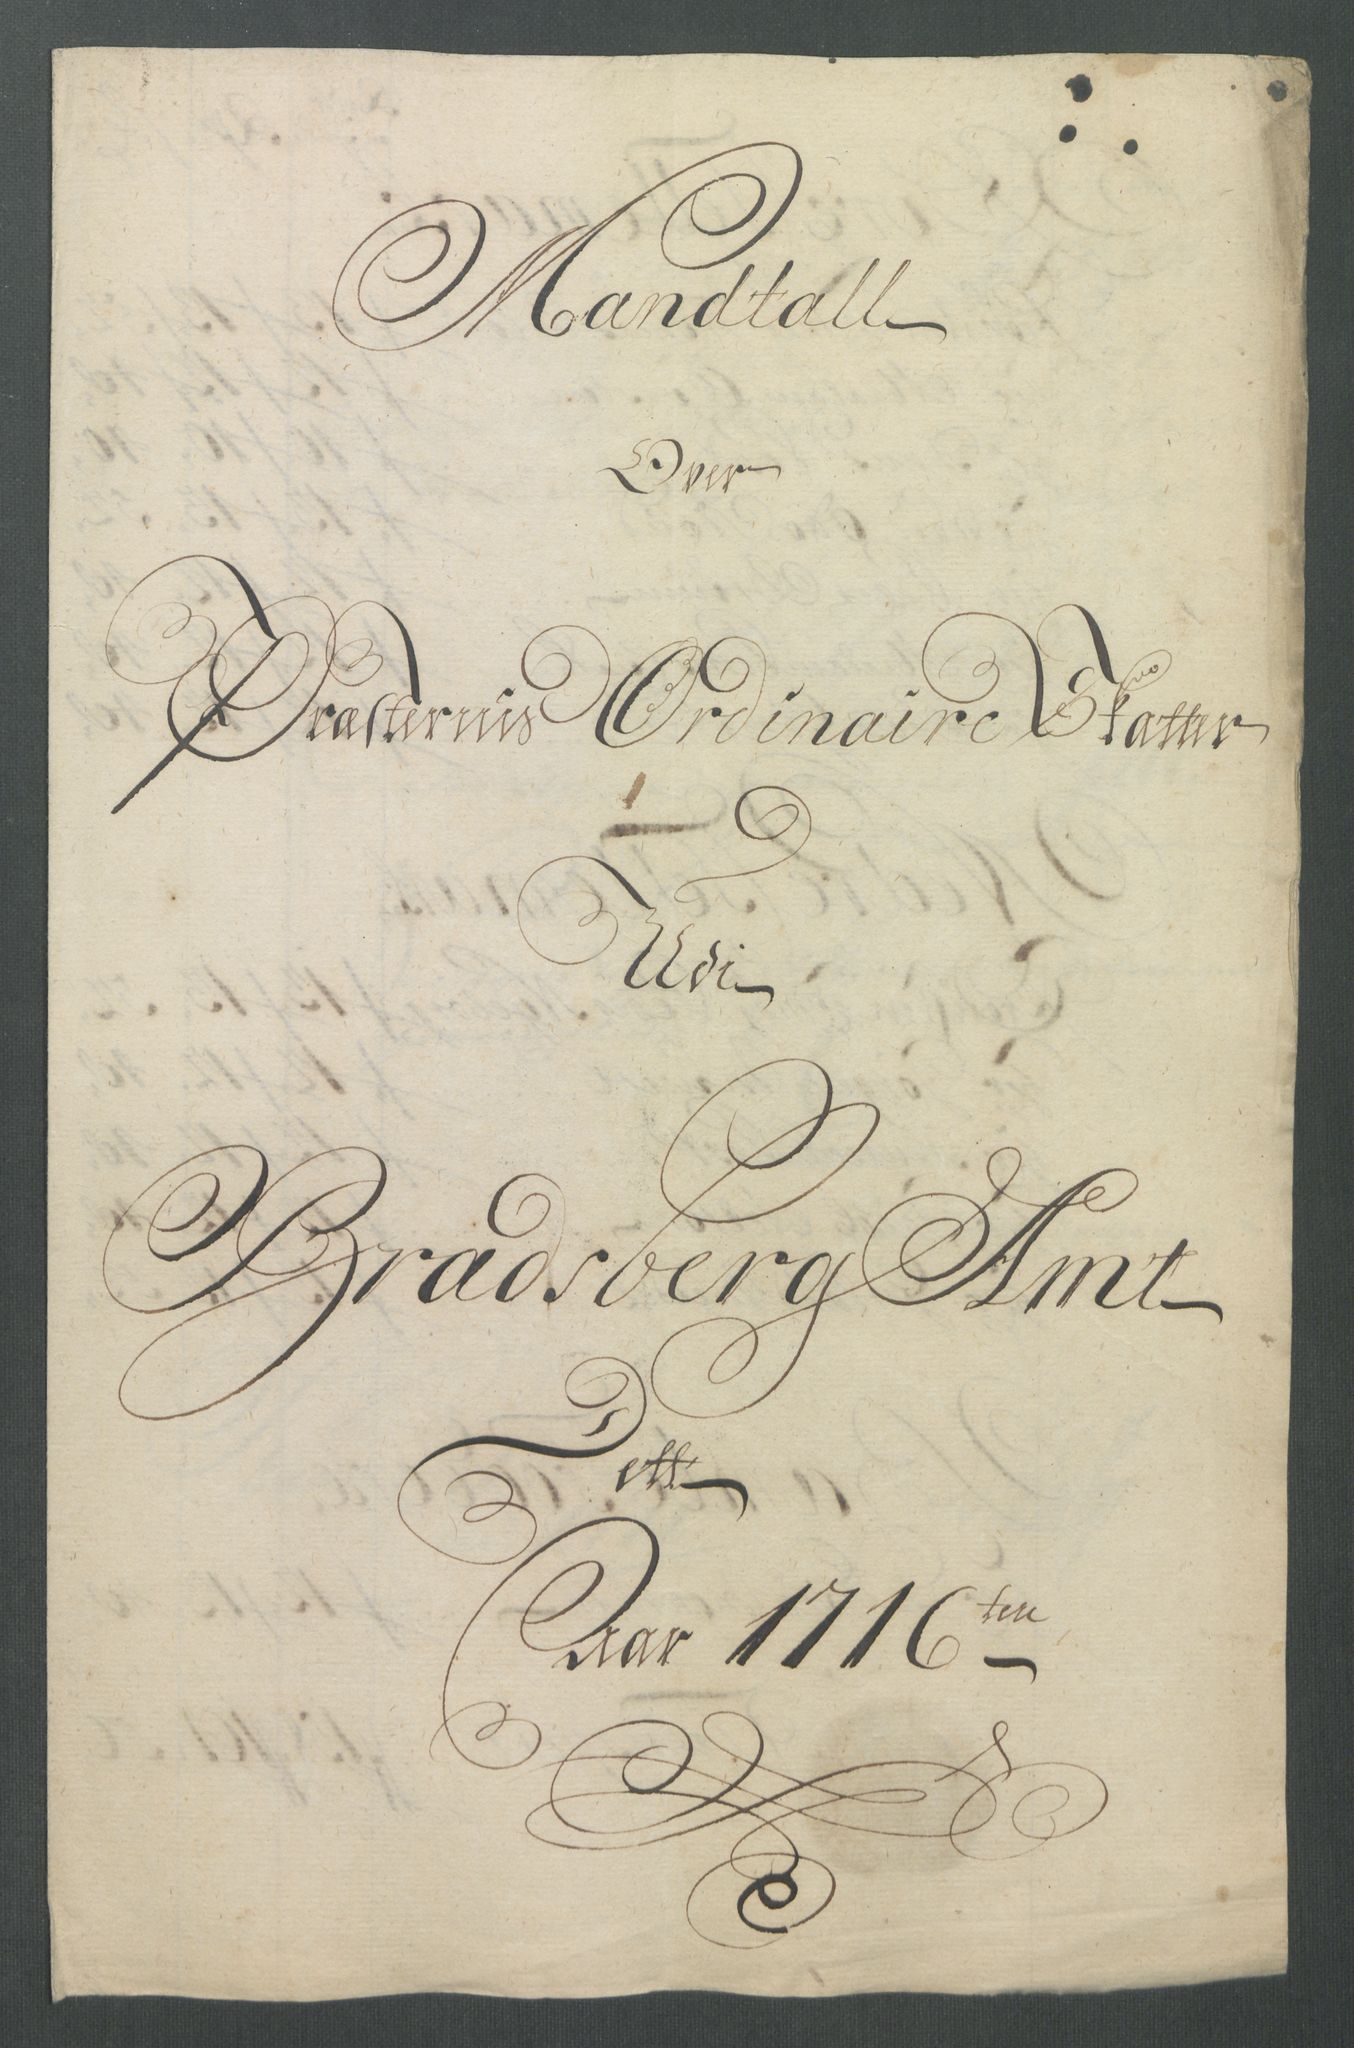 Mandtall
Over
Præsternis Ordinaire Skatter
Udi
Bradsberg Amt
Dett
Aar 1716ten